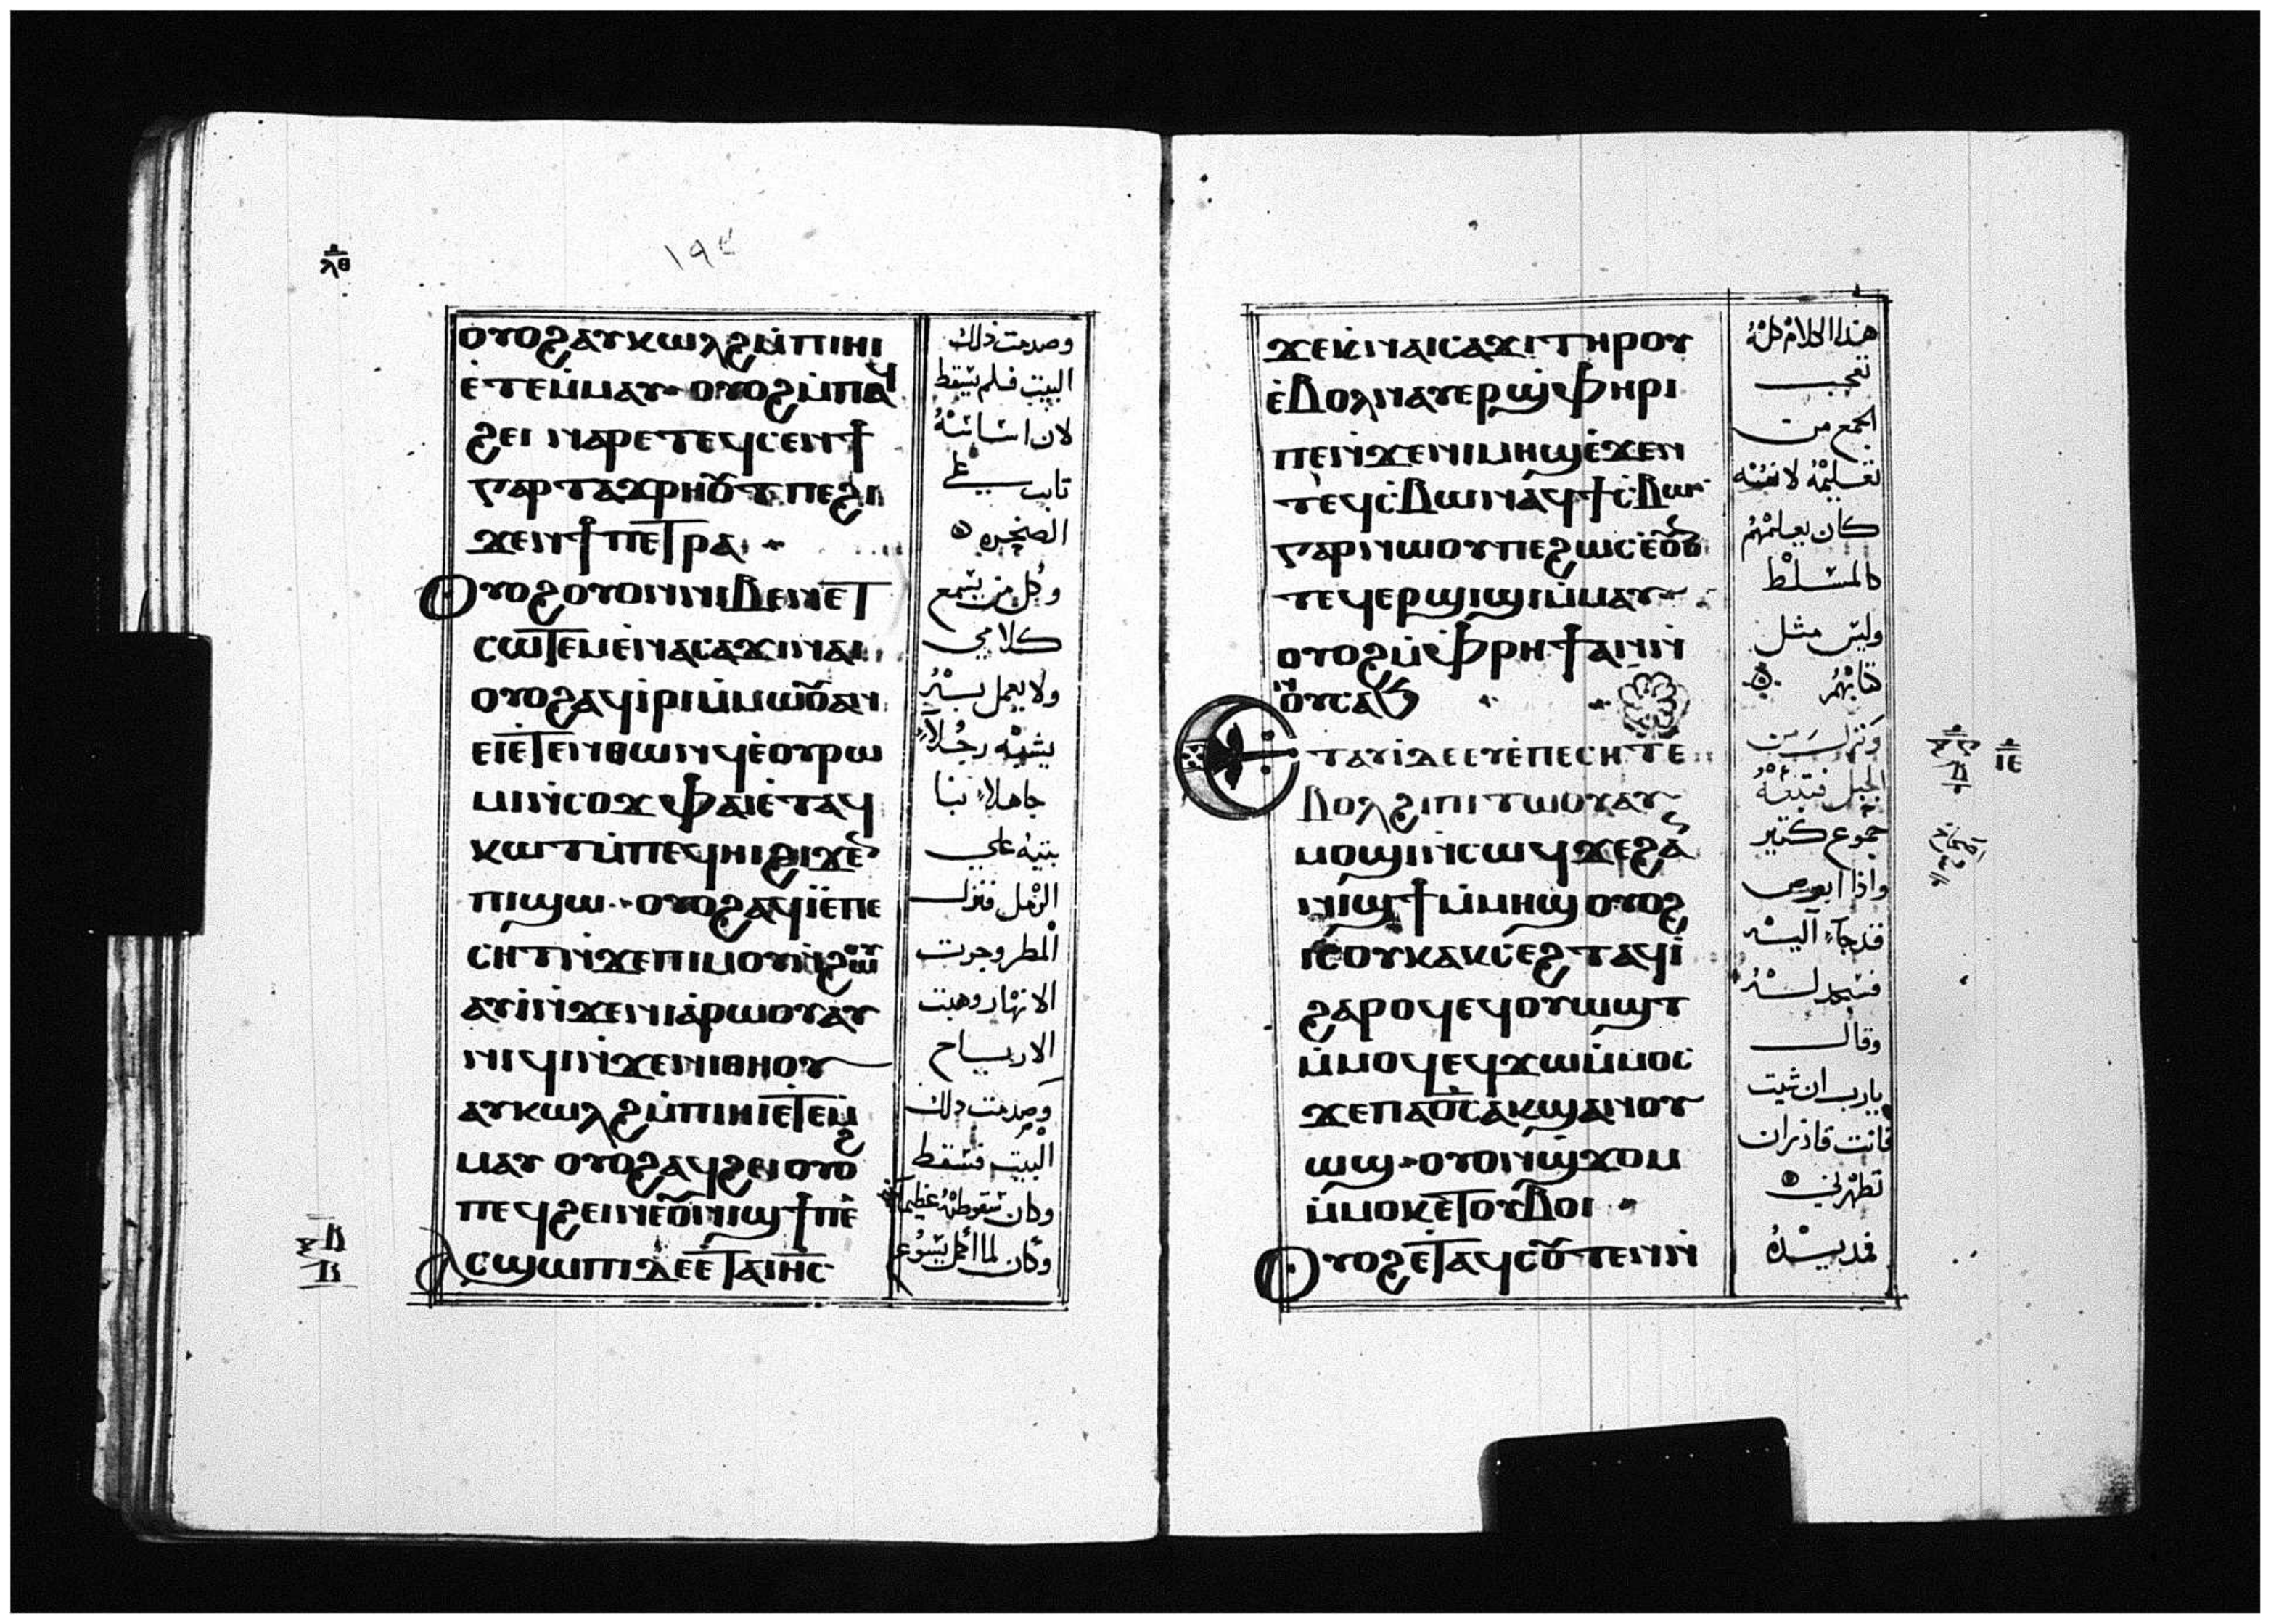 ⲗⲑ
١٩٤
ⲟⲩⲟϩⲁⲩⲕⲱⲗϩⲙ̇ⲡⲓⲏⲓ
ⲉ̇ⲧⲉⲙ̇ⲙⲁⲩ ⲟⲩⲟϩⲙ̇ⲡⲉϥ
ϩⲉⲓ ⲛⲁⲣⲉⲧⲉϥⲥⲉⲛϯ
ⲅⲁⲣⲧⲁϫⲣⲏⲟⲩⲧⲡⲉϩⲓ
ϫⲉⲛϯⲡⲉⲧⲣⲁ
ⲟⲩⲟϩⲟⲩⲟⲛⲛⲓⲃⲉⲛⲉⲧ
ⲥⲱⲧⲉⲙⲉ̇ⲛⲁⲥⲁϫⲓⲛⲁⲓ
ⲟⲩⲟϩⲁϥⲓ̇ⲣⲓⲙ̇ⲙⲱⲟⲩⲁⲛ
ⲉⲓⲉ̇ⲧⲉⲛⲑⲱⲛϥⲉ̇ⲟⲩⲣⲱ
ⲙⲓⲛ̇ⲥⲟϫ ⲫⲁⲓⲉ̇ⲧⲁϥ
ⲕⲱⲧⲙ̇ⲡⲉϥⲏⲓϩⲓϫⲉⲛ
ⲡⲓϣⲱ ⲟⲩⲟϩⲁϥⲓ̇ⲉ̇ⲡⲉ
ⲥⲏⲧⲛ̇ϫⲉⲡⲓⲙⲟⲩⲛϩⲱⲟⲩ
ⲁⲩⲓ̇ⲛ̇ϫⲉⲛⲓⲁⲣⲱⲟⲩⲁⲩ
ⲛⲓϥⲓⲛ̇ϫⲉⲛⲓⲑⲏⲟⲩ
ⲁⲩⲕⲱⲗϩⲙ̇ⲡⲓⲏⲓⲉ̇ⲧⲉⲙ̇
ⲙⲁⲩ ⲟⲩⲟϩⲁϥϩⲉⲓ ⲟⲩⲟϩ
ⲡⲉϥϩⲉⲓⲛⲉⲟⲩⲛⲓϣϯⲡⲉ
ⲁⲥϣⲱⲡⲓⲇⲉⲉ̇ⲧⲁⲓⲏⲥ
وصدمت ذلك
البيت فلم يسقط
لان اساسه
تابت علي
الصخره
وكل من يسمع
كلامي
ولا يعمل به
يشبه رجلاً
جاهلاً بنا
بيته علي
الرمل فنزل
المطر وجرت
الانهار وهبت
الارياح
وصدمت دلك
البيت فسقط
وكان سقوطه عظيما
وكان لما اكمل يسوع
ϫⲉⲕⲛⲁⲓⲥⲁϫⲓⲧⲏⲣⲟⲩ
ⲉ̇ⲃⲟⲗⲛⲁⲩⲉⲣϣ̇ⲫⲏⲣⲓ
ⲡⲉⲛ̇ϫⲉⲛⲓⲙⲏϣⲉ̇ϫⲉⲛ
ⲧⲉϥⲥ̇ⲃⲱⲛⲁϥϯⲥ̇ⲃⲱ
ⲅⲁⲣⲛⲱⲟⲩⲡⲉϩⲱⲥⲉ̇ⲟⲩⲟⲛ
ⲧⲉϥⲉⲣϣⲓϣⲓⲙ̇ⲙⲁⲩ
ⲟⲩⲟϩⲙ̇ⲫⲣⲏϯⲁⲛⲛ̇
ⲛⲟⲩⲥⲁϧ
ⲉⲧⲁⲩⲓ̇ⲇⲉⲉⲩⲉ̇ⲡⲉⲥⲏⲧⲉ
ⲃⲟⲗϩⲓⲡⲓⲧⲱⲟⲩⲁⲩ
ⲙⲟϣⲓⲛ̇ⲥⲱϥϫⲉϩⲁⲛ
ⲛⲓϣϯⲙ̇ⲙⲏϣ ⲟⲩⲟϩ
ⲓⲥⲟⲩⲕⲁⲕⲥⲉϩⲧⲁϥⲓ̇
ϩⲁⲣⲟϥⲉϥⲟⲩⲱϣⲧ
ⲙ̇ⲙⲟϥⲉϥϫⲱⲙ̇ⲙⲟⲥ
ϫⲉⲡⲁⲟ̅ⲥ̅ⲁⲕϣⲁⲛⲟⲩ
ⲱϣ ⲟⲩⲟⲛϣϫⲟⲙ
ⲙ̇ⲙⲟⲕⲉ̇ⲧⲟⲩⲃⲟⲓ
ⲟⲩⲟϩⲉ̇ⲧⲁϥⲥⲟⲩⲧⲉⲛⲛ̇
هذا الكلام كله
تعجب
الجمع من
تعليمه لانه
كان يعلمهم
كالمسلط
وليس مثل
كتابهم
ونزل من
الجبل فتبعه
جموع كتير
واذا ابرص
قد جآء اليه
فسجد له
وقال
يارب ان شيت
فانت قادر ان
تطهرني
فمد يده
ⲓⲉ